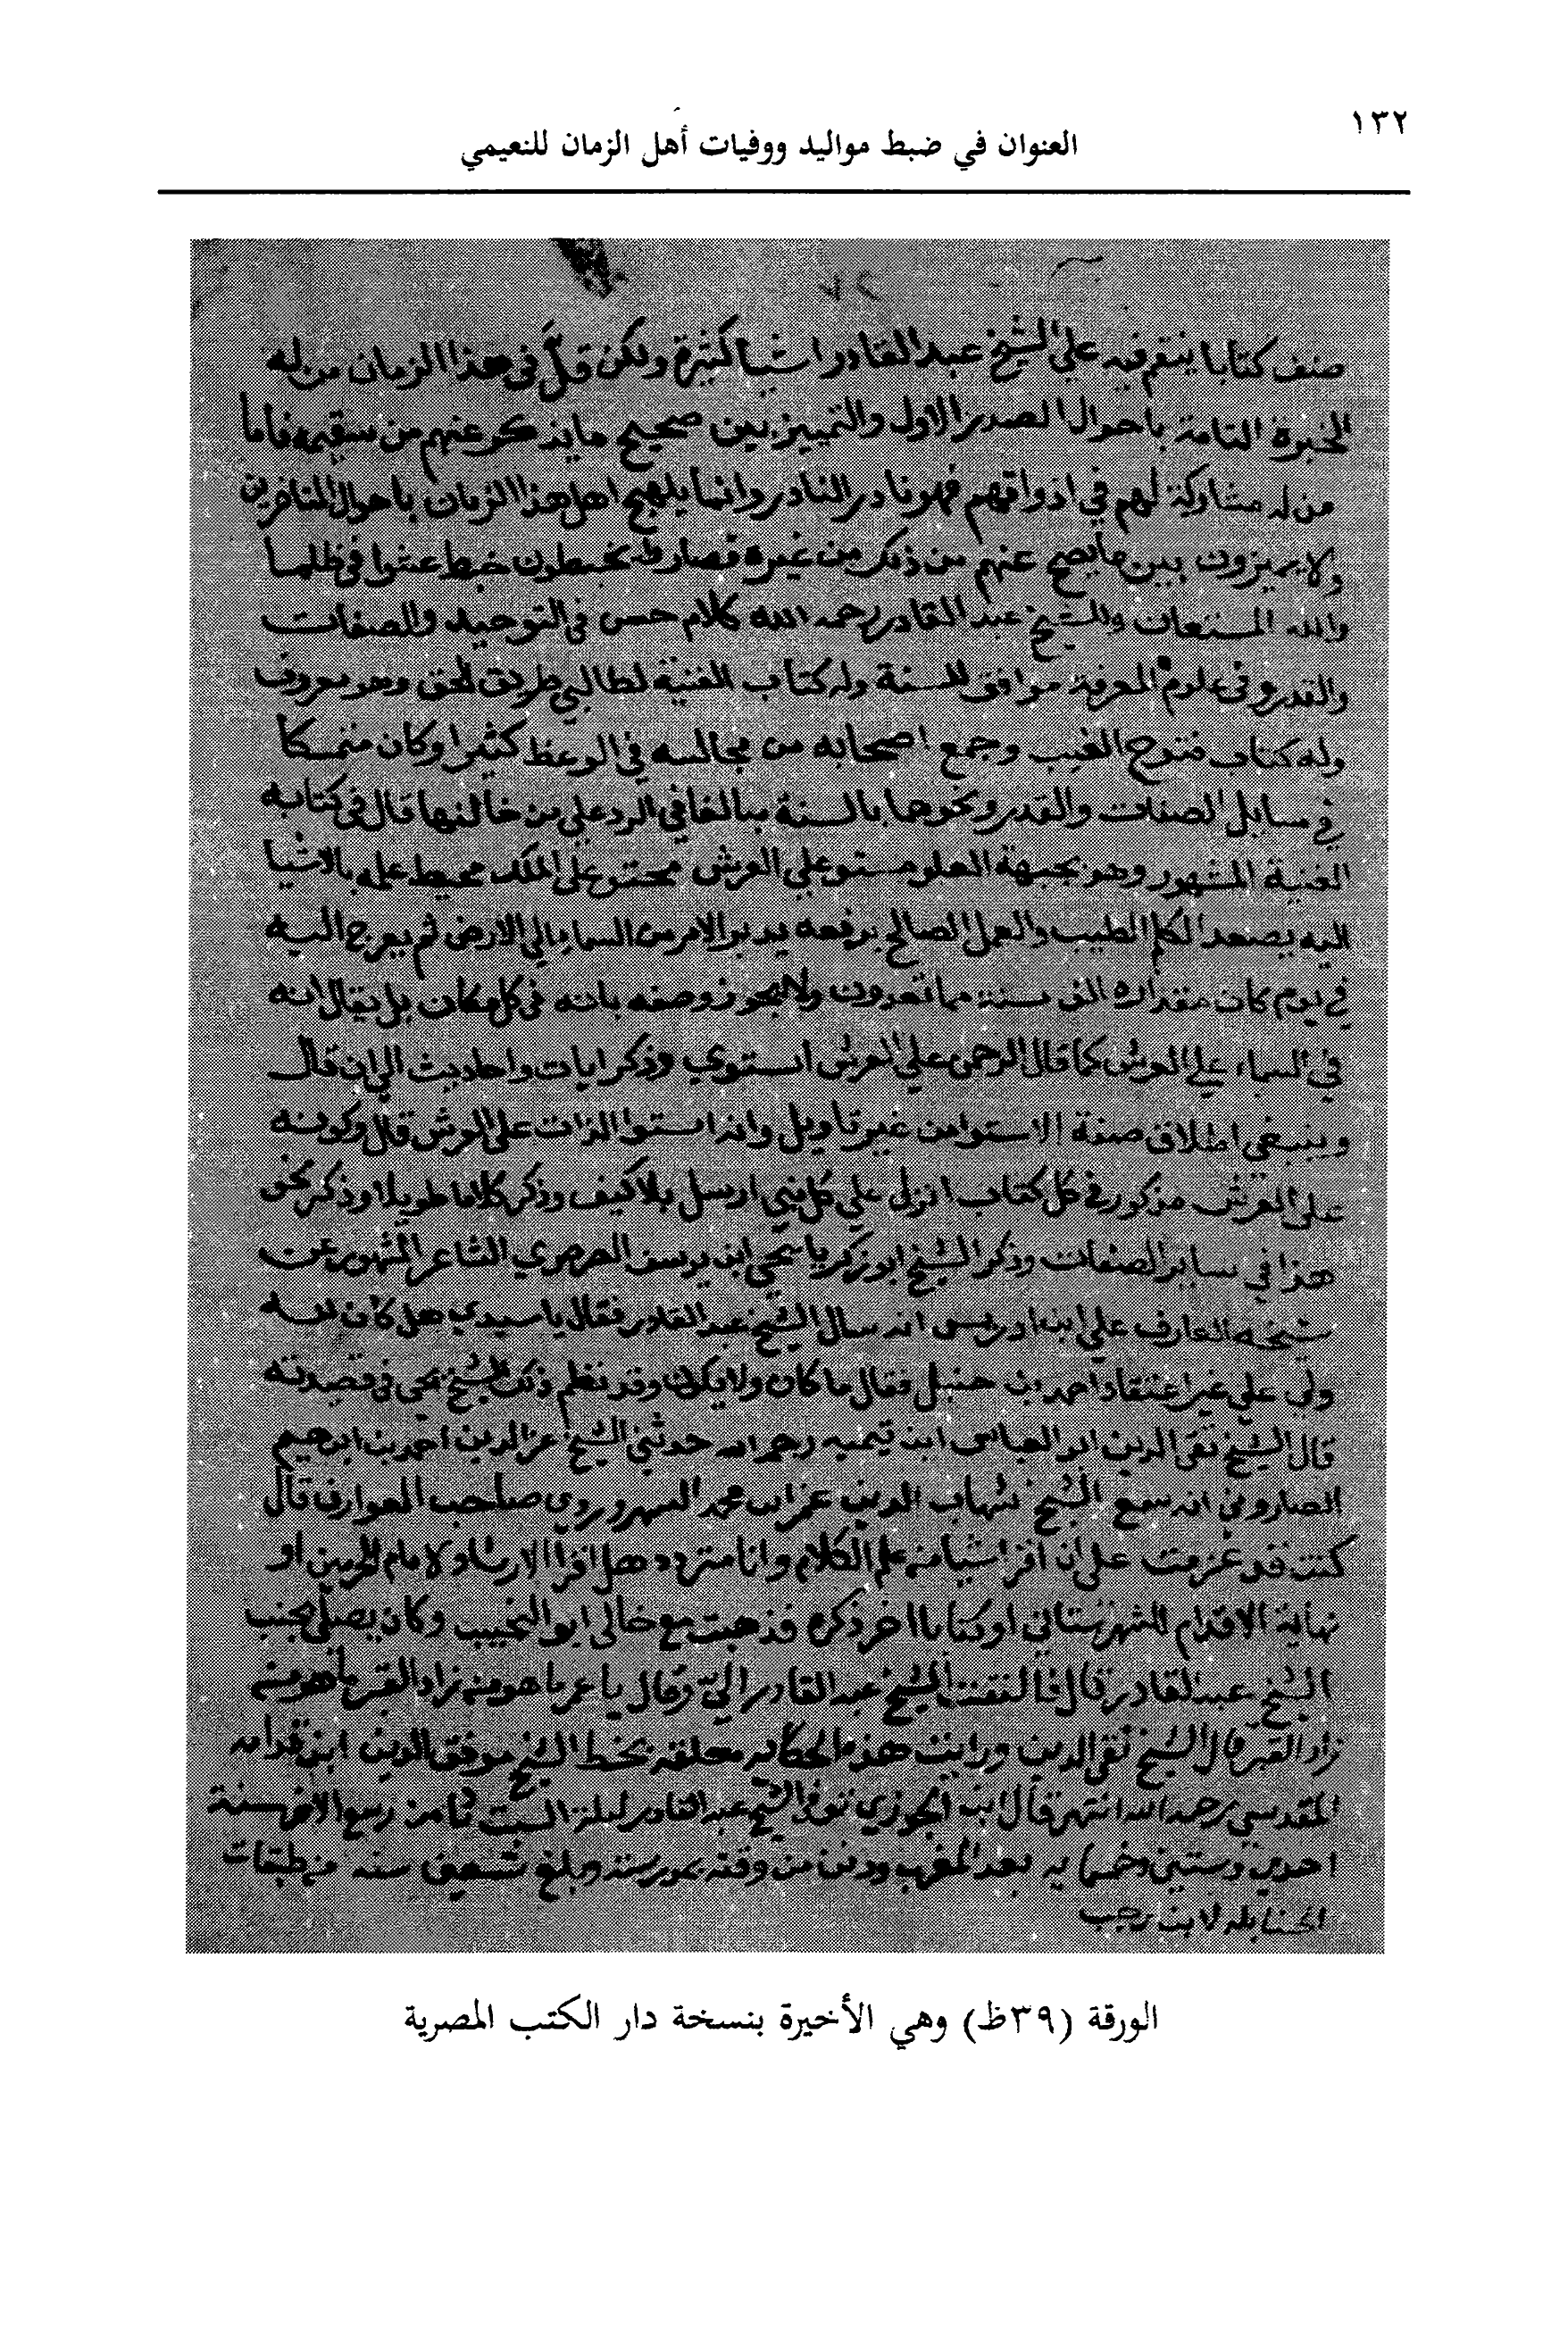 ١٣٢
العنوان في ضبط مواليد ووفيات أهل الزمان للنعيمي
صنف كتابا ينقم فيه علي الشيخ عبد القادر اشيا كثيرة ولكن قلّ في هذا الزمان من له
الخبرة التامة باحوال الصدر الاول والتمييز بين صحيح ما يذكر عنهم من سقيمه فاما
من له مشاركة لهم في اذواقهم فهو نادر النادر وانما يلهج اهل هذا الزمان باحوال المتاخرين
ولا يميزون بين ما يصح عنهم من ذلك من غيره فصاروا يخبطون خبط عشوا في ظلما
والله المستعان وللشيخ عبد القادر رحمه الله كلام حسن في التوحيد والصفات
والقدر وفي علوم المعرفة موافق للسنة وله كتاب الغنية لطالبي طريق الحق وهو معروف
وله كتاب فتوح الغيب وجمع اصحابه من مجالسه في الوعظ كثيرا وكان متمسكا
في مسايل الصفات والقدر ونحوها بالسنة مبالغا في الرد علي من خالفها قال في كتابه
الغنية المشهور وهو بجهة العلو مستو علي العرش محتو علي الملك محيط علمه بالاشيا
اليه يصعد الكلم الطيب والعمل الصالح يرفعه يدبر الامر من السماء الي الارض ثم يعرج اليه
في يوم كان مقداره الف سنة مما تعدون ولا يجوز وصفه بانه في كل مكان بل يقال انه
في السماء علي العرش كما قال الرحمن علي العرش استوي وذكر ايات واحاديث الي ان قال
وينبغي اطلاق صفة الاستوا من غير تاويل وانه استوا الذات على العرش قال وكونه
على العرش مذكور في كل كتاب انزل علي كل نبي ارسل بلا كيف وذكر كلاما طويلا وذكر نحو
هذا في ساير الصفات وذكر الشيخ ابو زكريا يحيي ابن يوسف الصرصري الشاعر المشهور عن
شيخه العارف علي ابن ادريس انه سال الشيخ عبد القادر فقال يا سيدي هل كان لله
ولي علي غير اعتقاد احمد بن حنبل فقال ما كان ولا يكون وقد نظم ذلك الشيخ يحيى في قصيدته
قال الشيخ تقي الدين ابو العباس ابن تيميه رحمه الله حدثني الشيخ عز الدين احمد بن ابرهيم
الفاروثي انه سمع الشيخ شهاب الدين عمر ابن محمد السهروردي صاحب العوارف قال
كنت قد عزمت على ان اقرا شيا من علم الكلام وانا متردد هل اقرا الارشاد لامام الحرمين او
نهاية الاقدام للشهرستاني او كتابا اخر ذكره فذهبت مع خالي ابو النجيب وكان يصلي بجنب
الشيخ عبد القادر قال فالتفت الشيخ عبد القادر اليّ وقال يا عمر ما هو من زاد القبر ما هو من
زاد القبر قال الشيخ تقي الدين ورايت هذه الحكايه معلقه بخط الشيخ موفق الدين ابن قدامه
المقدسي رحمه الله انتهى قال ابن الجوزي توفي الشيخ عبد القادر ليلة السبت ثامن ربيع الاخر سنة
احدي وستين وخمسمايه بعد المغرب ودفن من وقته بمدرسته وبلغ تسعين سنه من طبقات
الحنابله لابن رجب
الورقة (٣٩ظ) وهي الأخيرة بنسخة دار الكتب المصرية